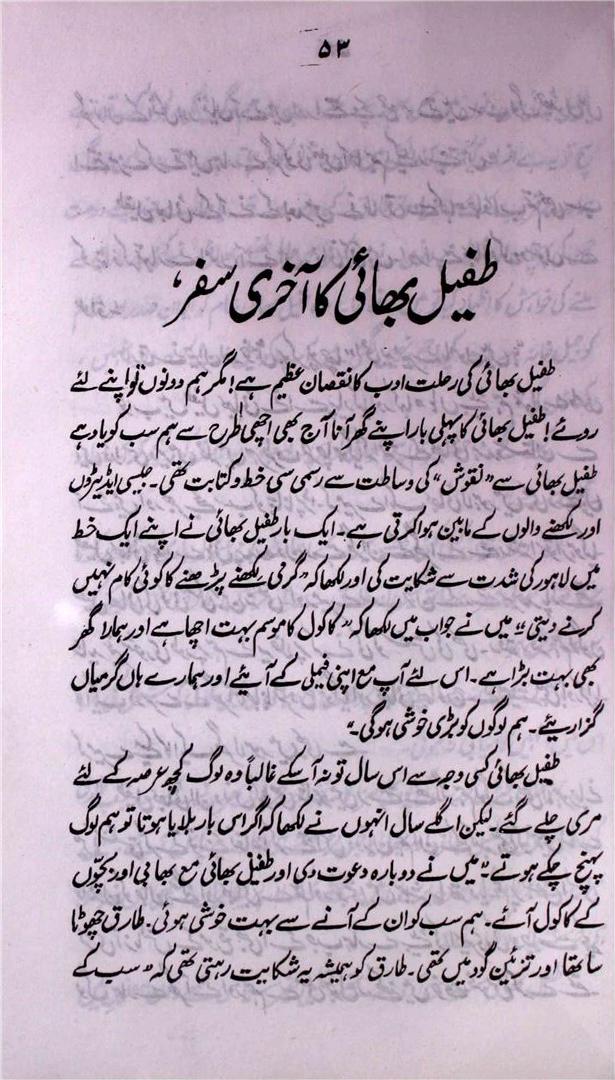 ۵۳
طفیل بھائی کا آخری سفر،
طفیل بھائی کی رحلت ادب کا نقصان عظیم ہے! مگر ہم دونوں تو اپنے لئے
روئے! طفیل بھائی کا پہلی بار اپنے گھر آنا آج بھی اچھی طرح سے ہم سب کو یاد ہے
طفیل بھائی سے "نقوش" کی وساطت سے رسمی سی خط و کتابت تھی۔ جیسی ایڈیٹروں
اور لکھنے والوں کے مابین ہوا کرتی ہے۔ ایک بار طفیل بھائی نے اپنے ایک خط
میں لاہور کی شدت سے شکایت کی اور لکھا کہ "گرمی لکھنے پڑھنے کا کوئی کام نہیں
کرنے دیتی" میں نے جواب میں لکھا کہ "کاکول کا موسم بہت اچھا ہے اور ہمارا گھر
بھی بہت بڑا ہے۔ اس لئے آپ مع اپنی فیملی کے آیئے اور ہمارے ہاں گرمیاں
گزاریئے۔ ہم لوگوں کو بڑی خوشی ہوگی۔"
طفیل بھائی کسی وجہ سے اس سال تو نہ آسکے غالباً وہ لوگ کچھ عرصہ کے لئے
مری چلے گئے۔ لیکن اگلے سال انہوں نے لکھا کہ اگر اس بار بلایا ہوتا تو ہم لوگ
پہنچ چکے ہوتے" میں نے دوبارہ دعوت دی اور طفیل بھائی مع بھابی اور بچّوں
کے کاکول آئے۔ ہم سب کو ان کے آنے سے بہت خوشی ہوئی۔ طارق چھوٹا
سا تھا اور تزئین گود میں تھی۔ طارق کو ہمیشہ یہ شکایت رہتی تھی کہ "سب کے